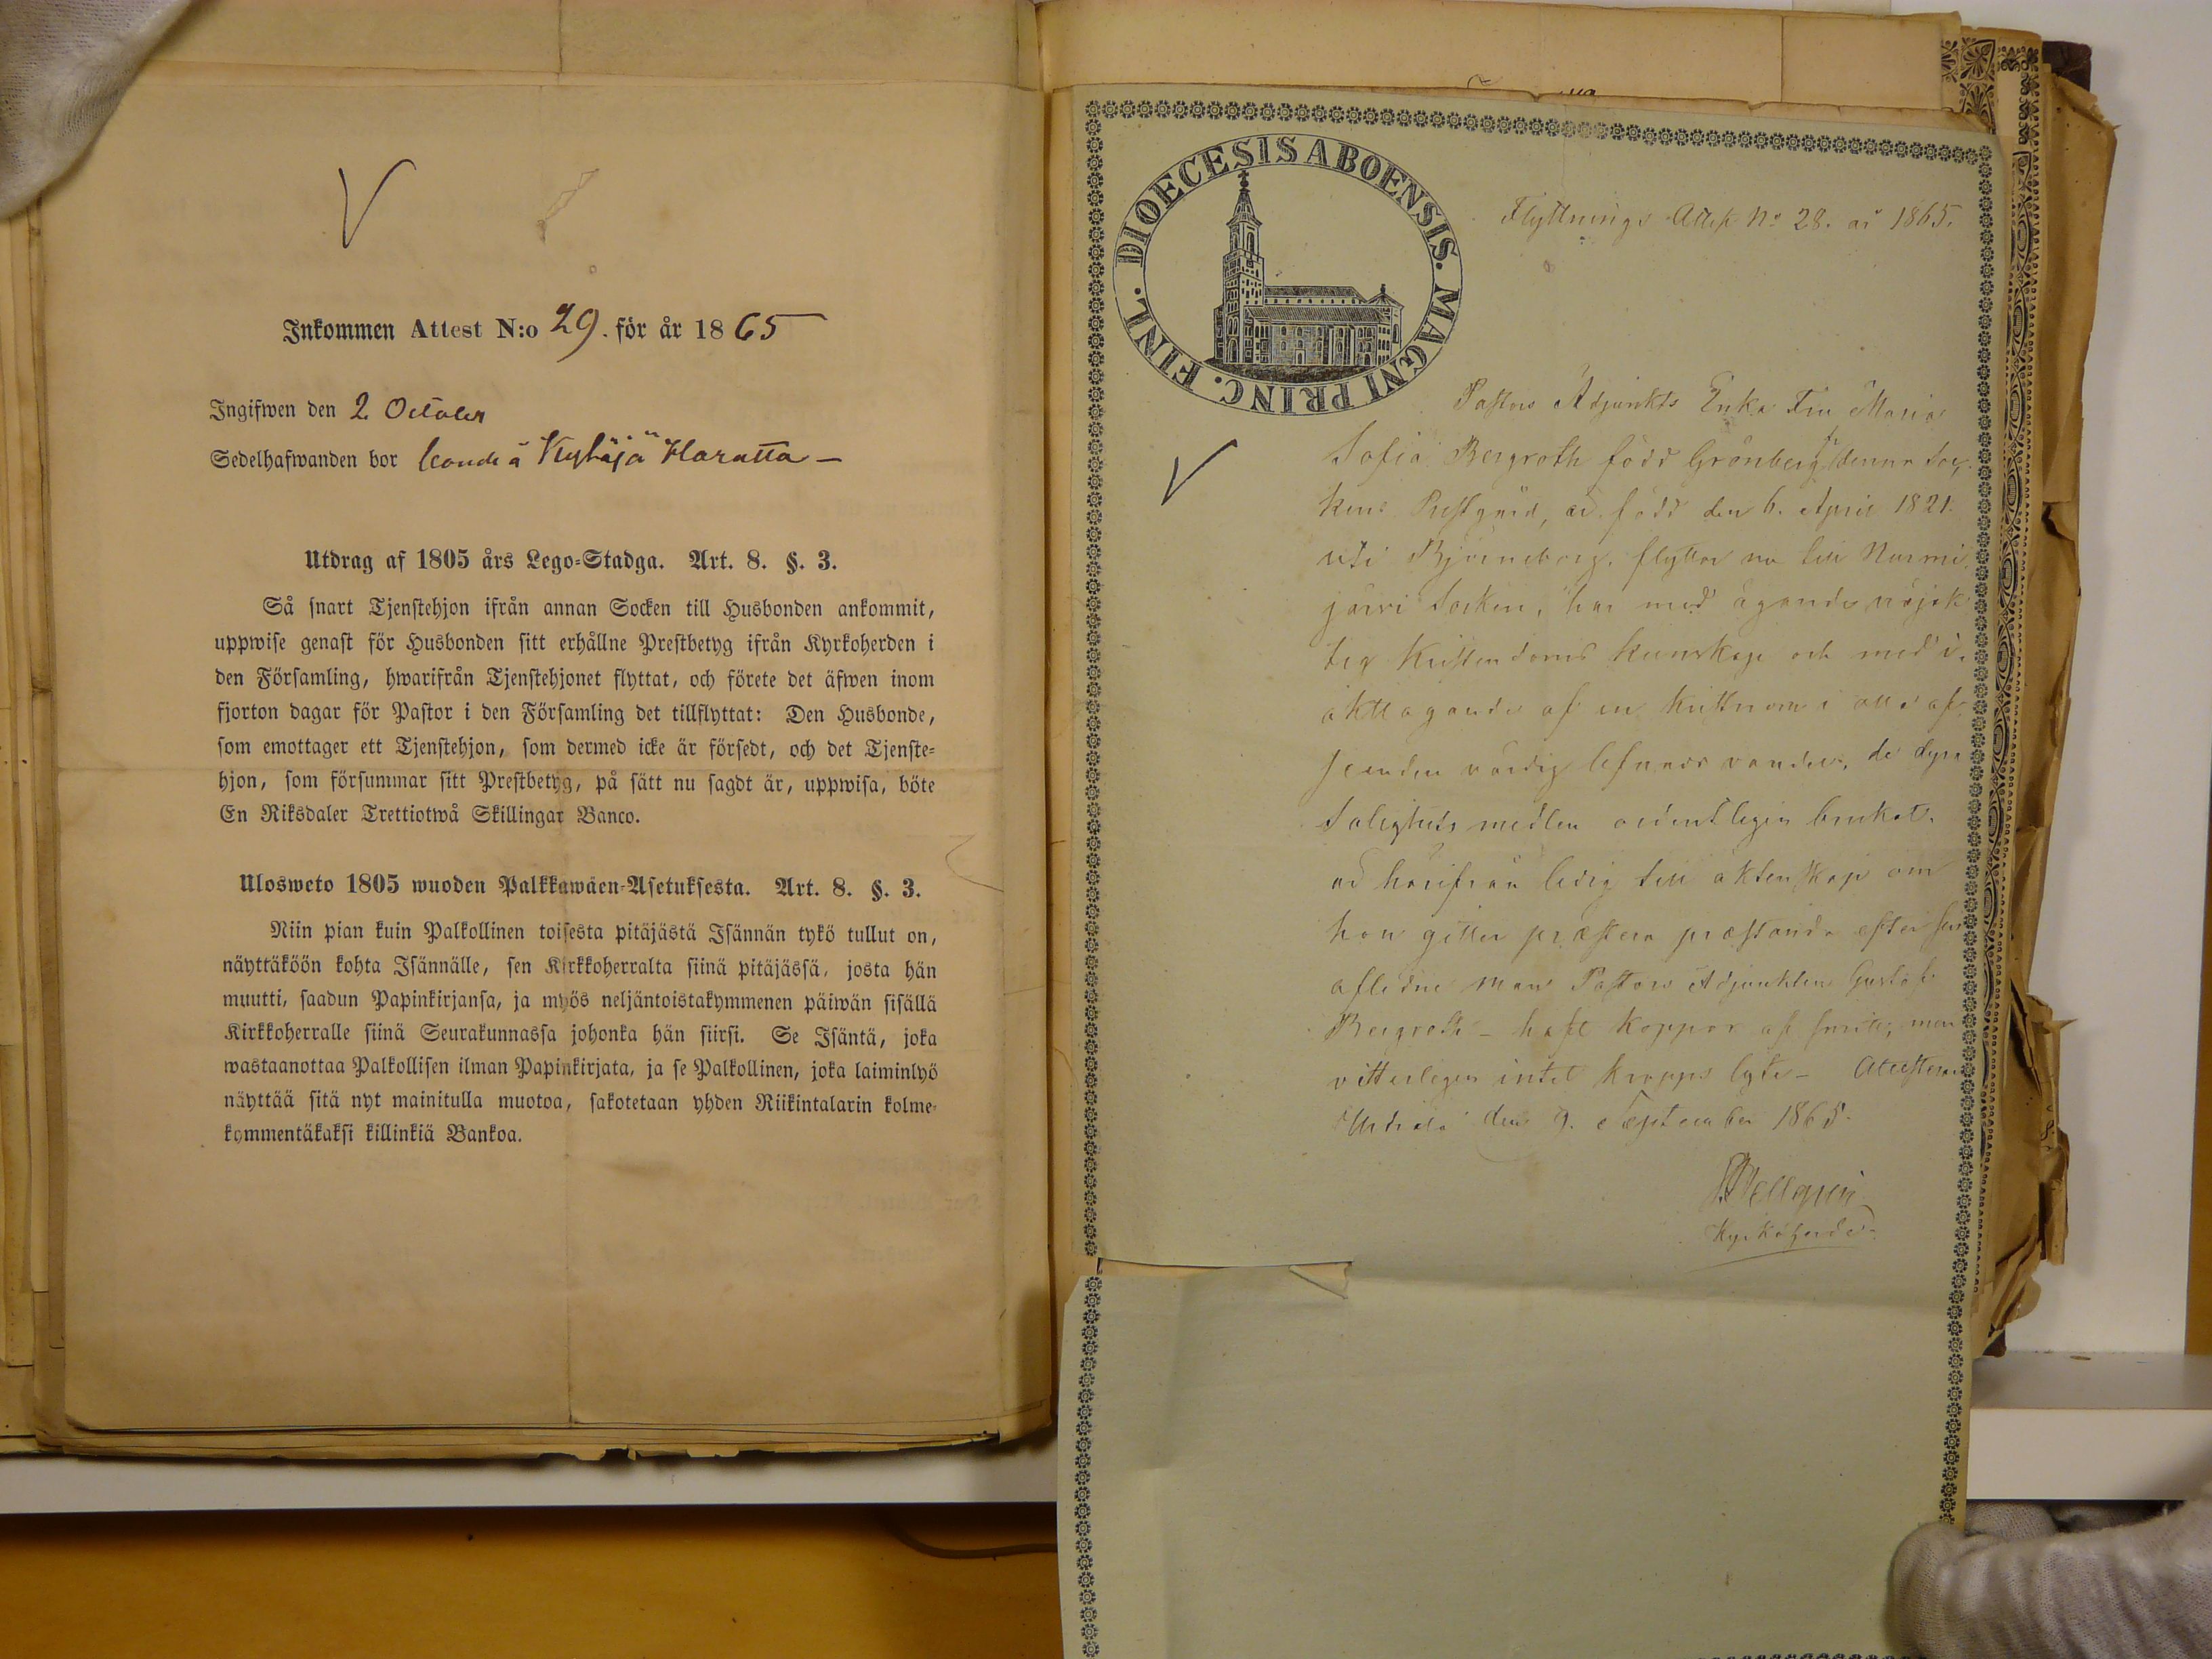 Inkommen Attest N:o 29. för år 1865
Ingifwen den 2 October
Sedelhafwanden bor boende å Kytäjä Haratta
Utdrag af 1805 års Lego-Stadga. Art. 8. §. 3.
Så snart Tjenstehjon ifrån annan Socken till Husbonden ankommit,
uppwise genast för Husbonden sitt erhållne Prestbetyg ifrån Kyrkoherden i
den Församling, hwarifrån Tjenstehjonet flyttat, och förete det äfwen inom
fjorton dagar för Pastor i den Församling det tillflyttat: Den Husbonde,
som emottager ett Tjenstehjon, som dermed icke är försedt, och det Tjenste-
hjon, som försummar sitt Prestbetyg, på sätt nu sagdt är, uppwisa, böte
En Riksdaler Trettiotwå Skillingar Banco.
Ulosweto 1805 wuoden Palkkawäen-Asetuksesta. Art. 8. §. 3.
Niin pian kuin Palkollinen toisesta pitäjästä Isännän tykö tullut on,
näyttäköön kohta Isännälle, sen Kirkkoherralta siinä pitäjässä, josta hän
muutti, saadun Papinkirjansa, ja myös neljäntoistakymmenen päiwän sisällä
Kirkkoherralle siinä Seurakunnassa johonka hän siirsi. Se Isäntä, joka
wastaanottaa Palkollisen ilman Papinkirjata, ja se Palkollinen, joka laiminlyö
näyttää sitä nyt mainitulla muotoa, sakotetaan yhden Riikintalarin kolme-
kymmentäkaksi killinkiä Bankoa.
DIOECESIS ABOENSIS. MAGNI PRINC. FINL.
Flyttnings Attest No 28. år 1865.
Pastors Adjunkts Enka Fru Maria
Sofia Bergroth född Grönberg fr denna Soc-
kens Prestgård, är född den 6. April 1821.
uti Björneborg, flyttar nu till Nurmi-
järvi Socken, har med ägande nöjak-
tig Kristendoms kunskap och med i-
akttagande af en kristnom i alla af-
seenden värdig lefnads vandel, de dyra
Salighets medlen ordentligen brukat.
är härifrån ledig till äktenskap om
hon gitter præstera præstanda efter sin
aflidne man Pastors Adjunkten Gustaf
Bergroth - haft koppor af smitta, men
vitterligen intet kropps lyte - Attesterar
den 9. September 1865.
Hellgren
Kyrkoherde